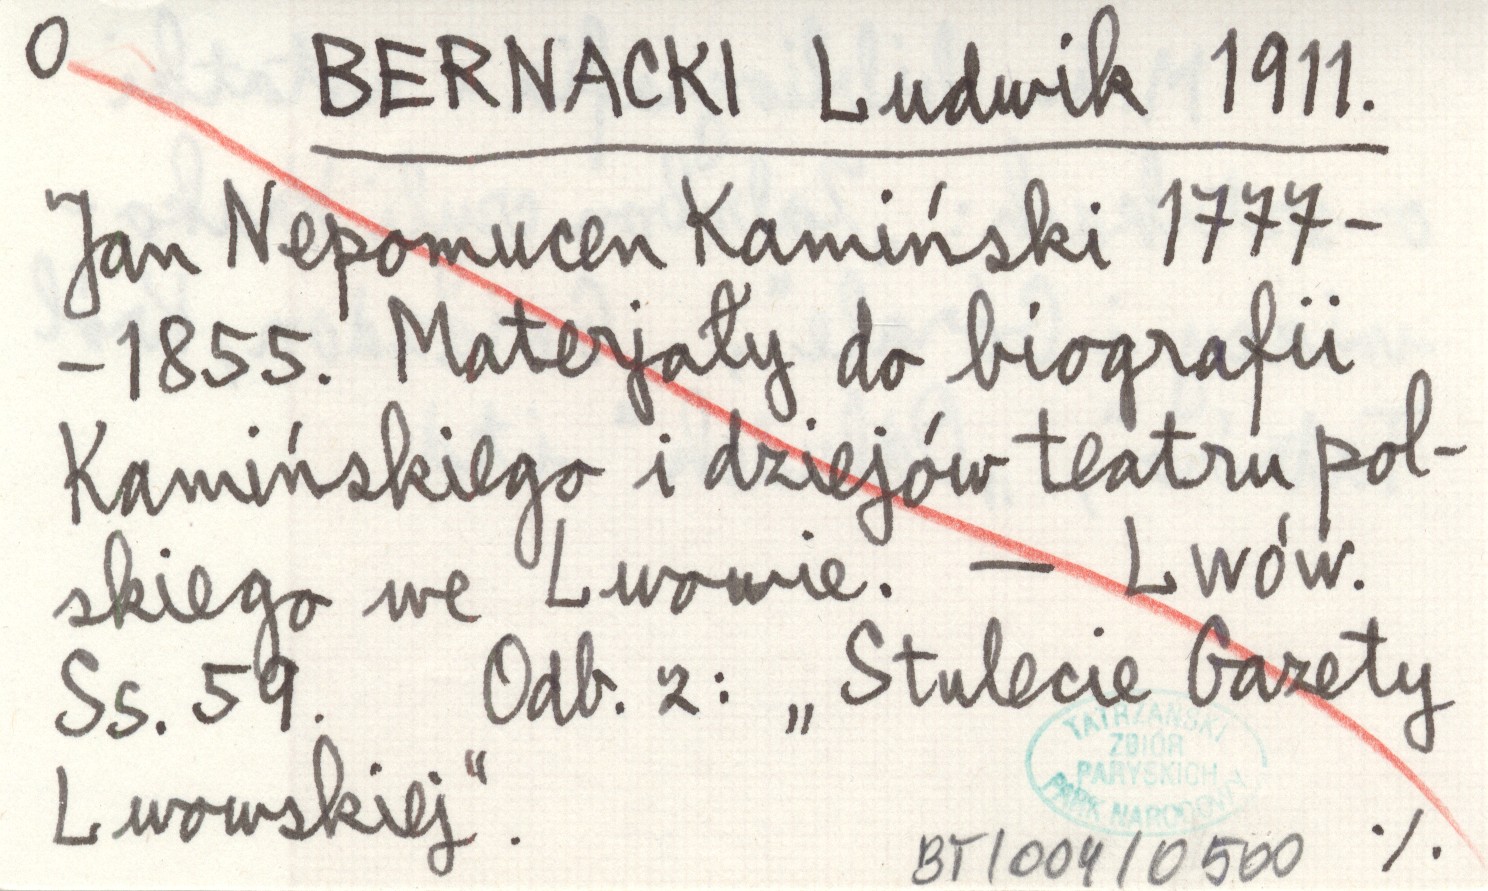 O
BERNACKI Ludwik 1911.
Jan Nepomucen Kamiński 1777-
-1855. Materjały do biografii
Kamińskiego i dziejów teatru pol-
skiego we Lwowie. — Lwów.
Ss. 59. Odb. z: „Stulecie Gazety
Lwowskiej".
TATRZAŃSKI
ZBIÓR
PARYSKICH
PARK NARODOWY
BT/004/0500
·/.